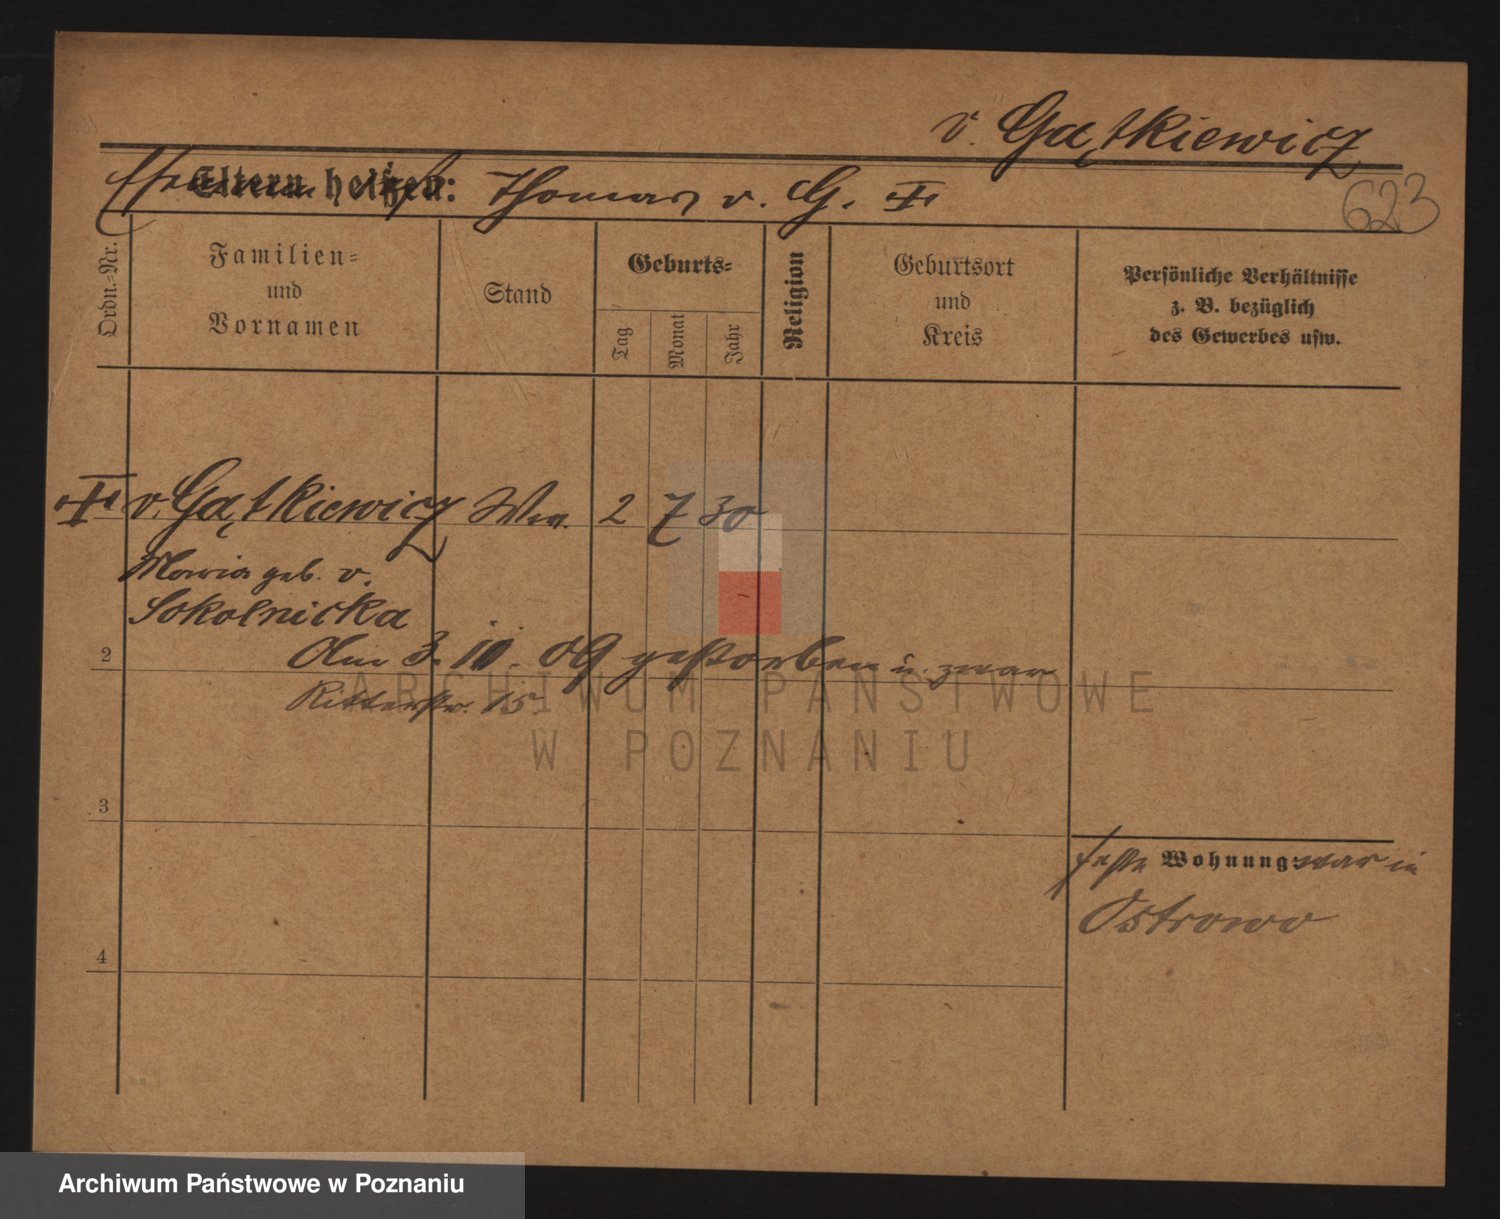 v. Gątkiewicz
Eltern heißen: Thomas v. G. ✝
623
Ordn.-Nr.
Familien-
und
Vornamen
Stand
Geburts-
Tag
Monat
Jahr
Religion
Geburtsort
und
Kreis
Persönliche Verhältnisse
z. B. bezüglich
des Gewerbes usw.
✝ v. Gątkiewicz Ww. 2 7 30
Maria geb. v.
Sokolnicka
2
Am 3. 10. 09 gestorben u. zwar
Ritterstr. 15.
ARCHIWUM PAŃSTWOWE
W POZNANIU
3
feste Wohnung: war in
Ostrowo
4
Archiwum Państwowe w Poznaniu